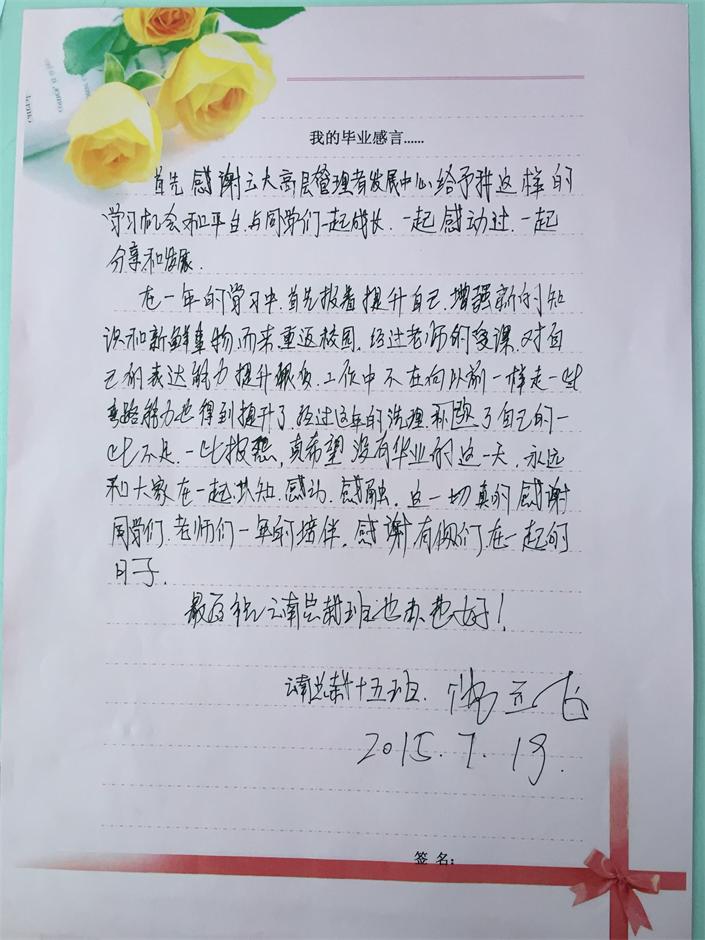 我的毕业感言......
首先感谢云大高层管理者发展中心给予我这样的
学习机会和平台,与同学们一起成长.一起感动过.一起
分享和发展.
在一年的学习中,首先报着提升自己.增强新的知
识和新鲜事物而来,重返校园.经过老师的受课.对自
己的表达能力提升很负.工作中不在向以前一样走一些
弯路能力也得到提升了.经过这年的洗理,弥了自己的一
些不足.一些报怨,真希望没有毕业的这一天.永远
和大家在一起.共知.感动.感融.这一切真的感谢
同学们.老师们一年的培伴.感谢有你们在一起的
日子.
最后祝云南总裁班越办越好!
云南总裁十五班.
2015.7.19.
签 名: